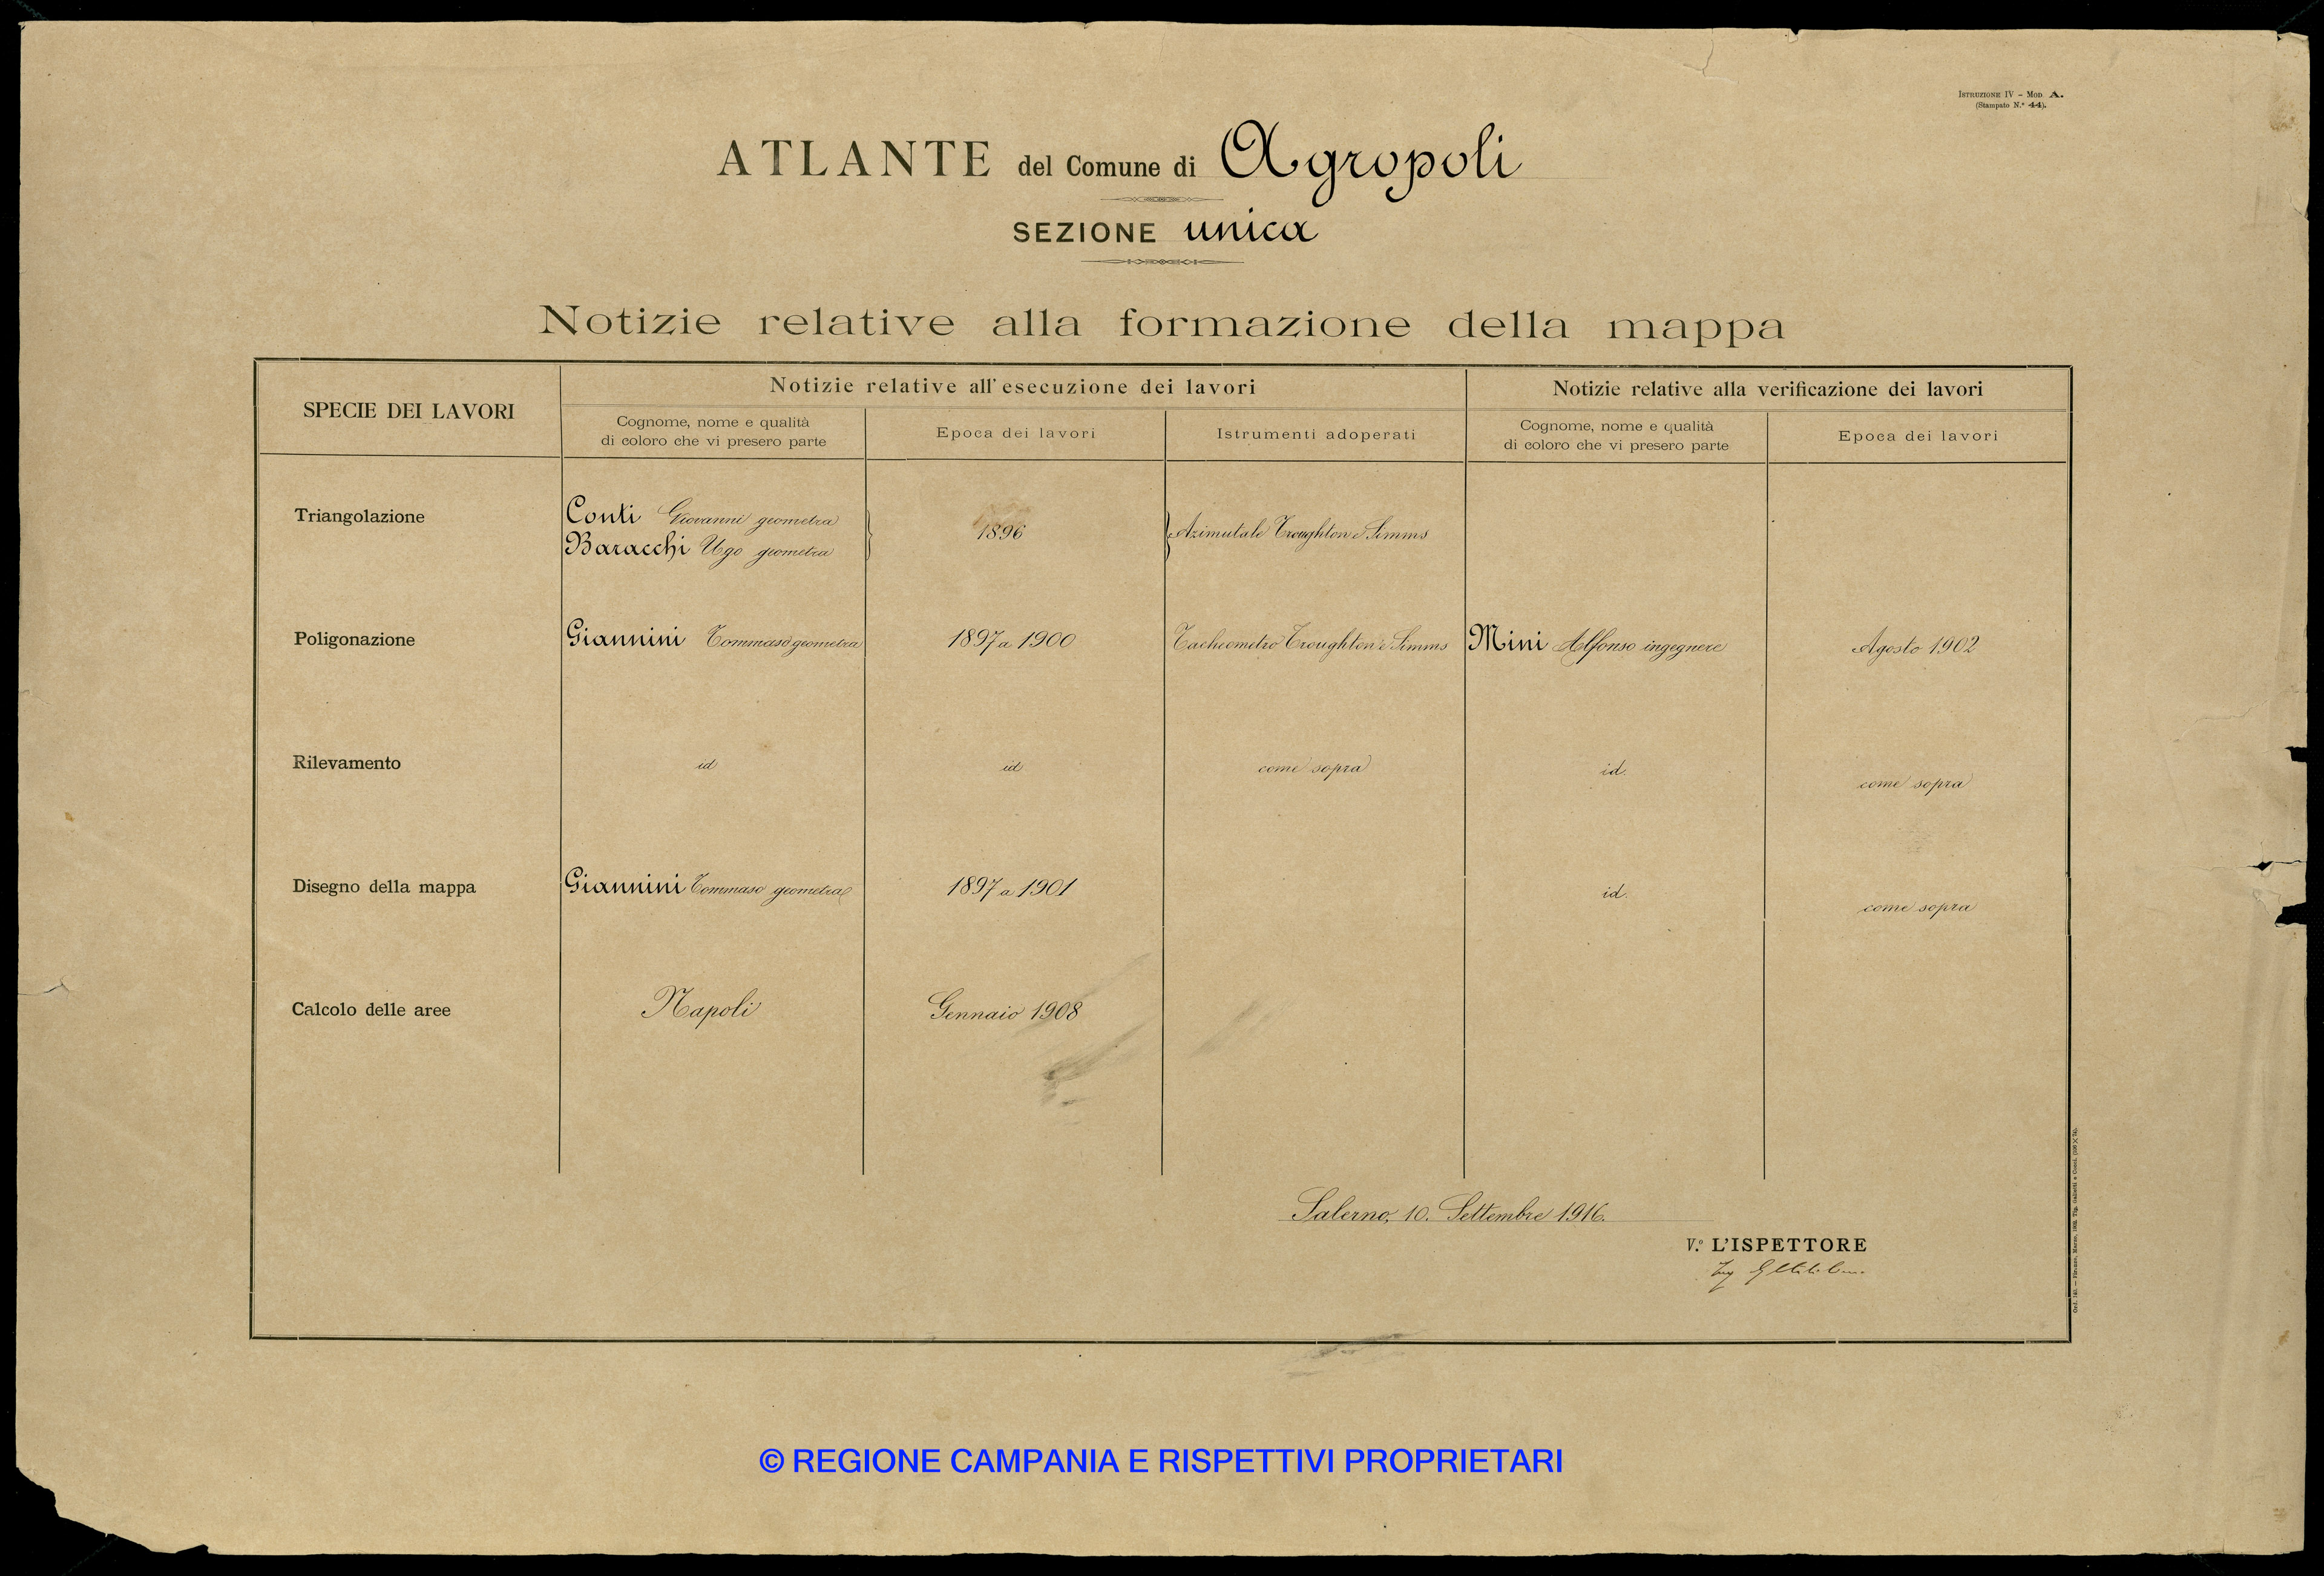 ISTRUZIONE IV – MOD. A.
(Stampato N.° 44).
ATLANTE del Comune di Agropoli
SEZIONE unica
Notizie relative alla formazione della mappa
SPECIE DEI LAVORI
Notizie relative all'esecuzione dei lavori
Notizie relative alla verificazione dei lavori
Cognome, nome e qualità
di coloro che vi presero parte
Epoca dei lavori
Istrumenti adoperati
Cognome, nome e qualità
di coloro che vi presero parte
Epoca dei lavori
Triangolazione
Conti Giovanni geometra
Baracchi Ugo geometra
1896
Azimutale Troughton e Simms
Poligonazione
Giannini Tommaso geometra
1897 a 1900
Tacheometro Troughton e Simms
Mini Alfonso ingegnere
Agosto 1902
Rilevamento
id
id
come sopra
id.
come sopra
Disegno della mappa
Giannini Tommaso geometra
1897 a 1901
id.
come sopra
Calcolo delle aree
Napoli
Gennaio 1908
Salerno, 10. Settembre 1916.
V.° L'ISPETTORE
Ing
© REGIONE CAMPANIA E RISPETTIVI PROPRIETARI